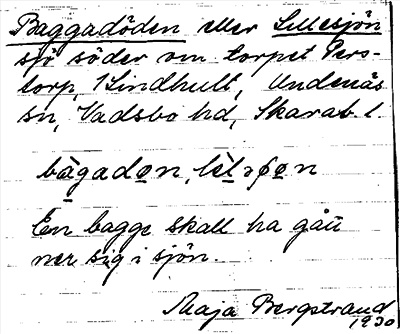 Baggadöden eller Lillesjön
sjö söder om torpet Pers-
torp, 1 Lindhult, Undenäs
sn, Vadsbo hd, Skarab. l.
En bagge skall ha gått
ner sig i sjön.
Maja Bergstrand
1930